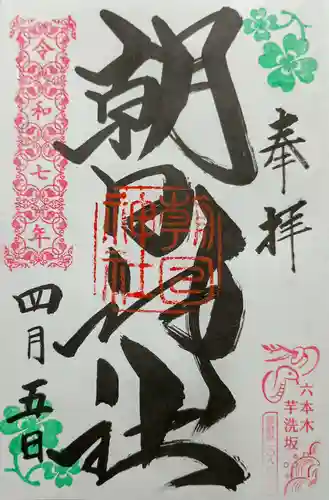 奉拝
朝日神社
朝日
神社
令和七年
四月五日
六本木
芋洗坂